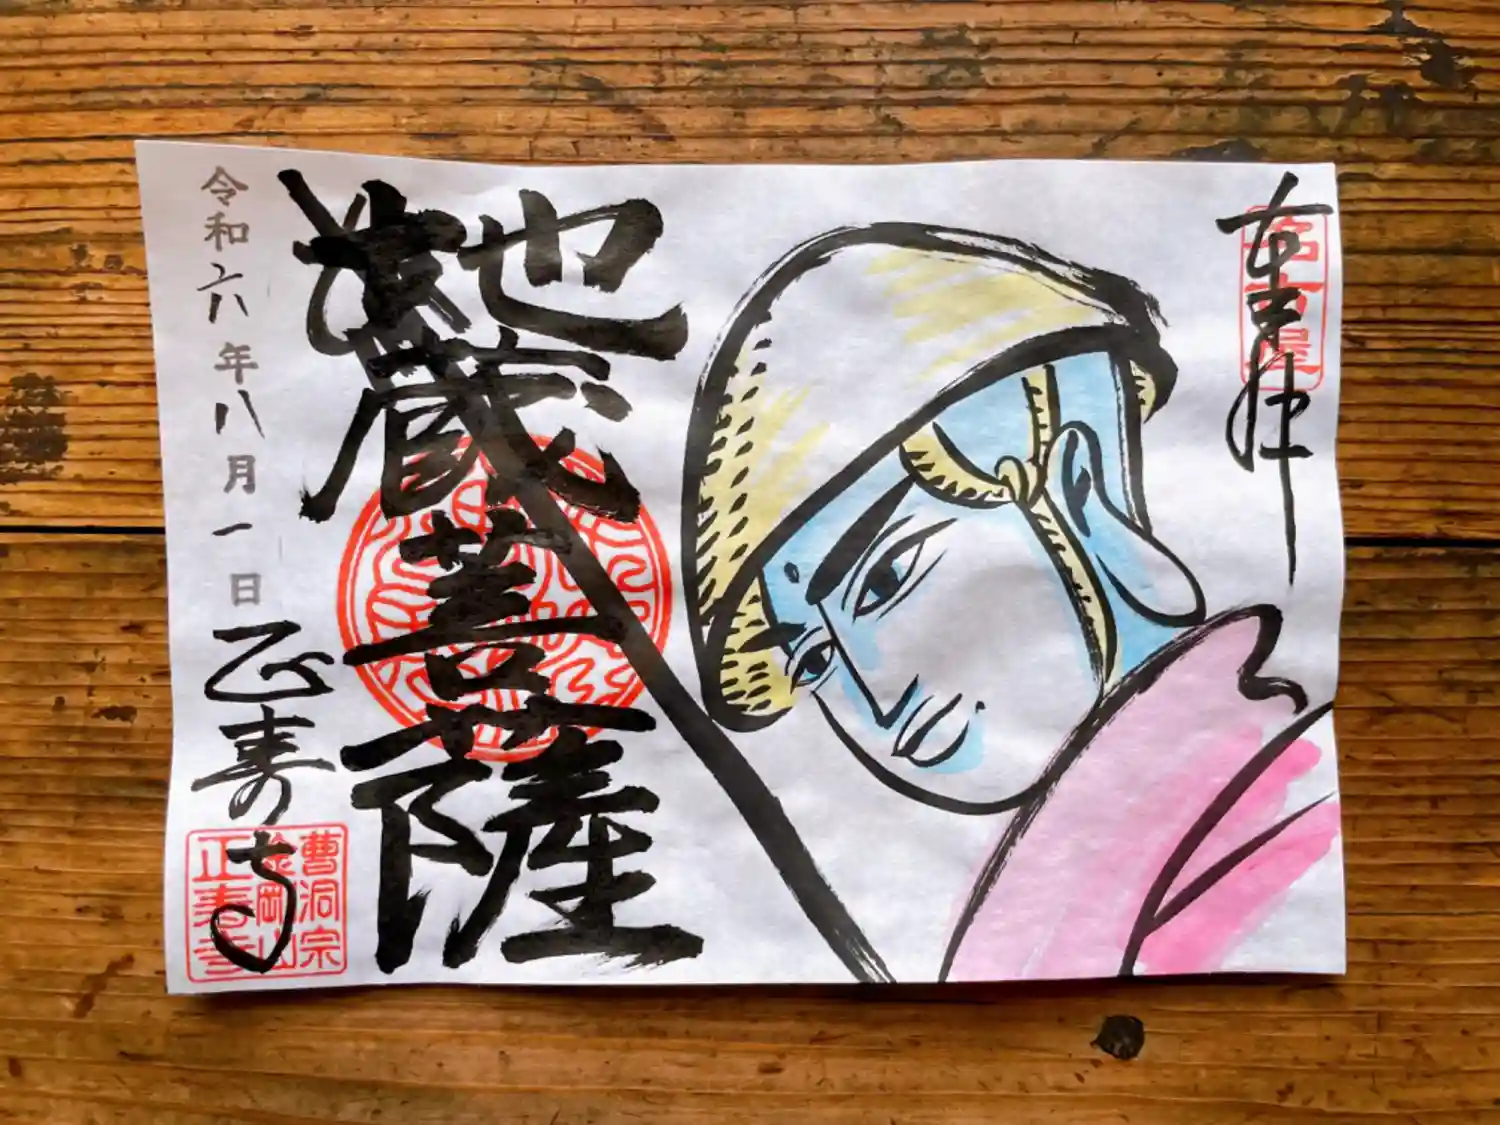 奉拝
名古屋
地蔵菩薩
令和六年八月一日
正寿寺
曹洞宗
金剛山
正寿寺